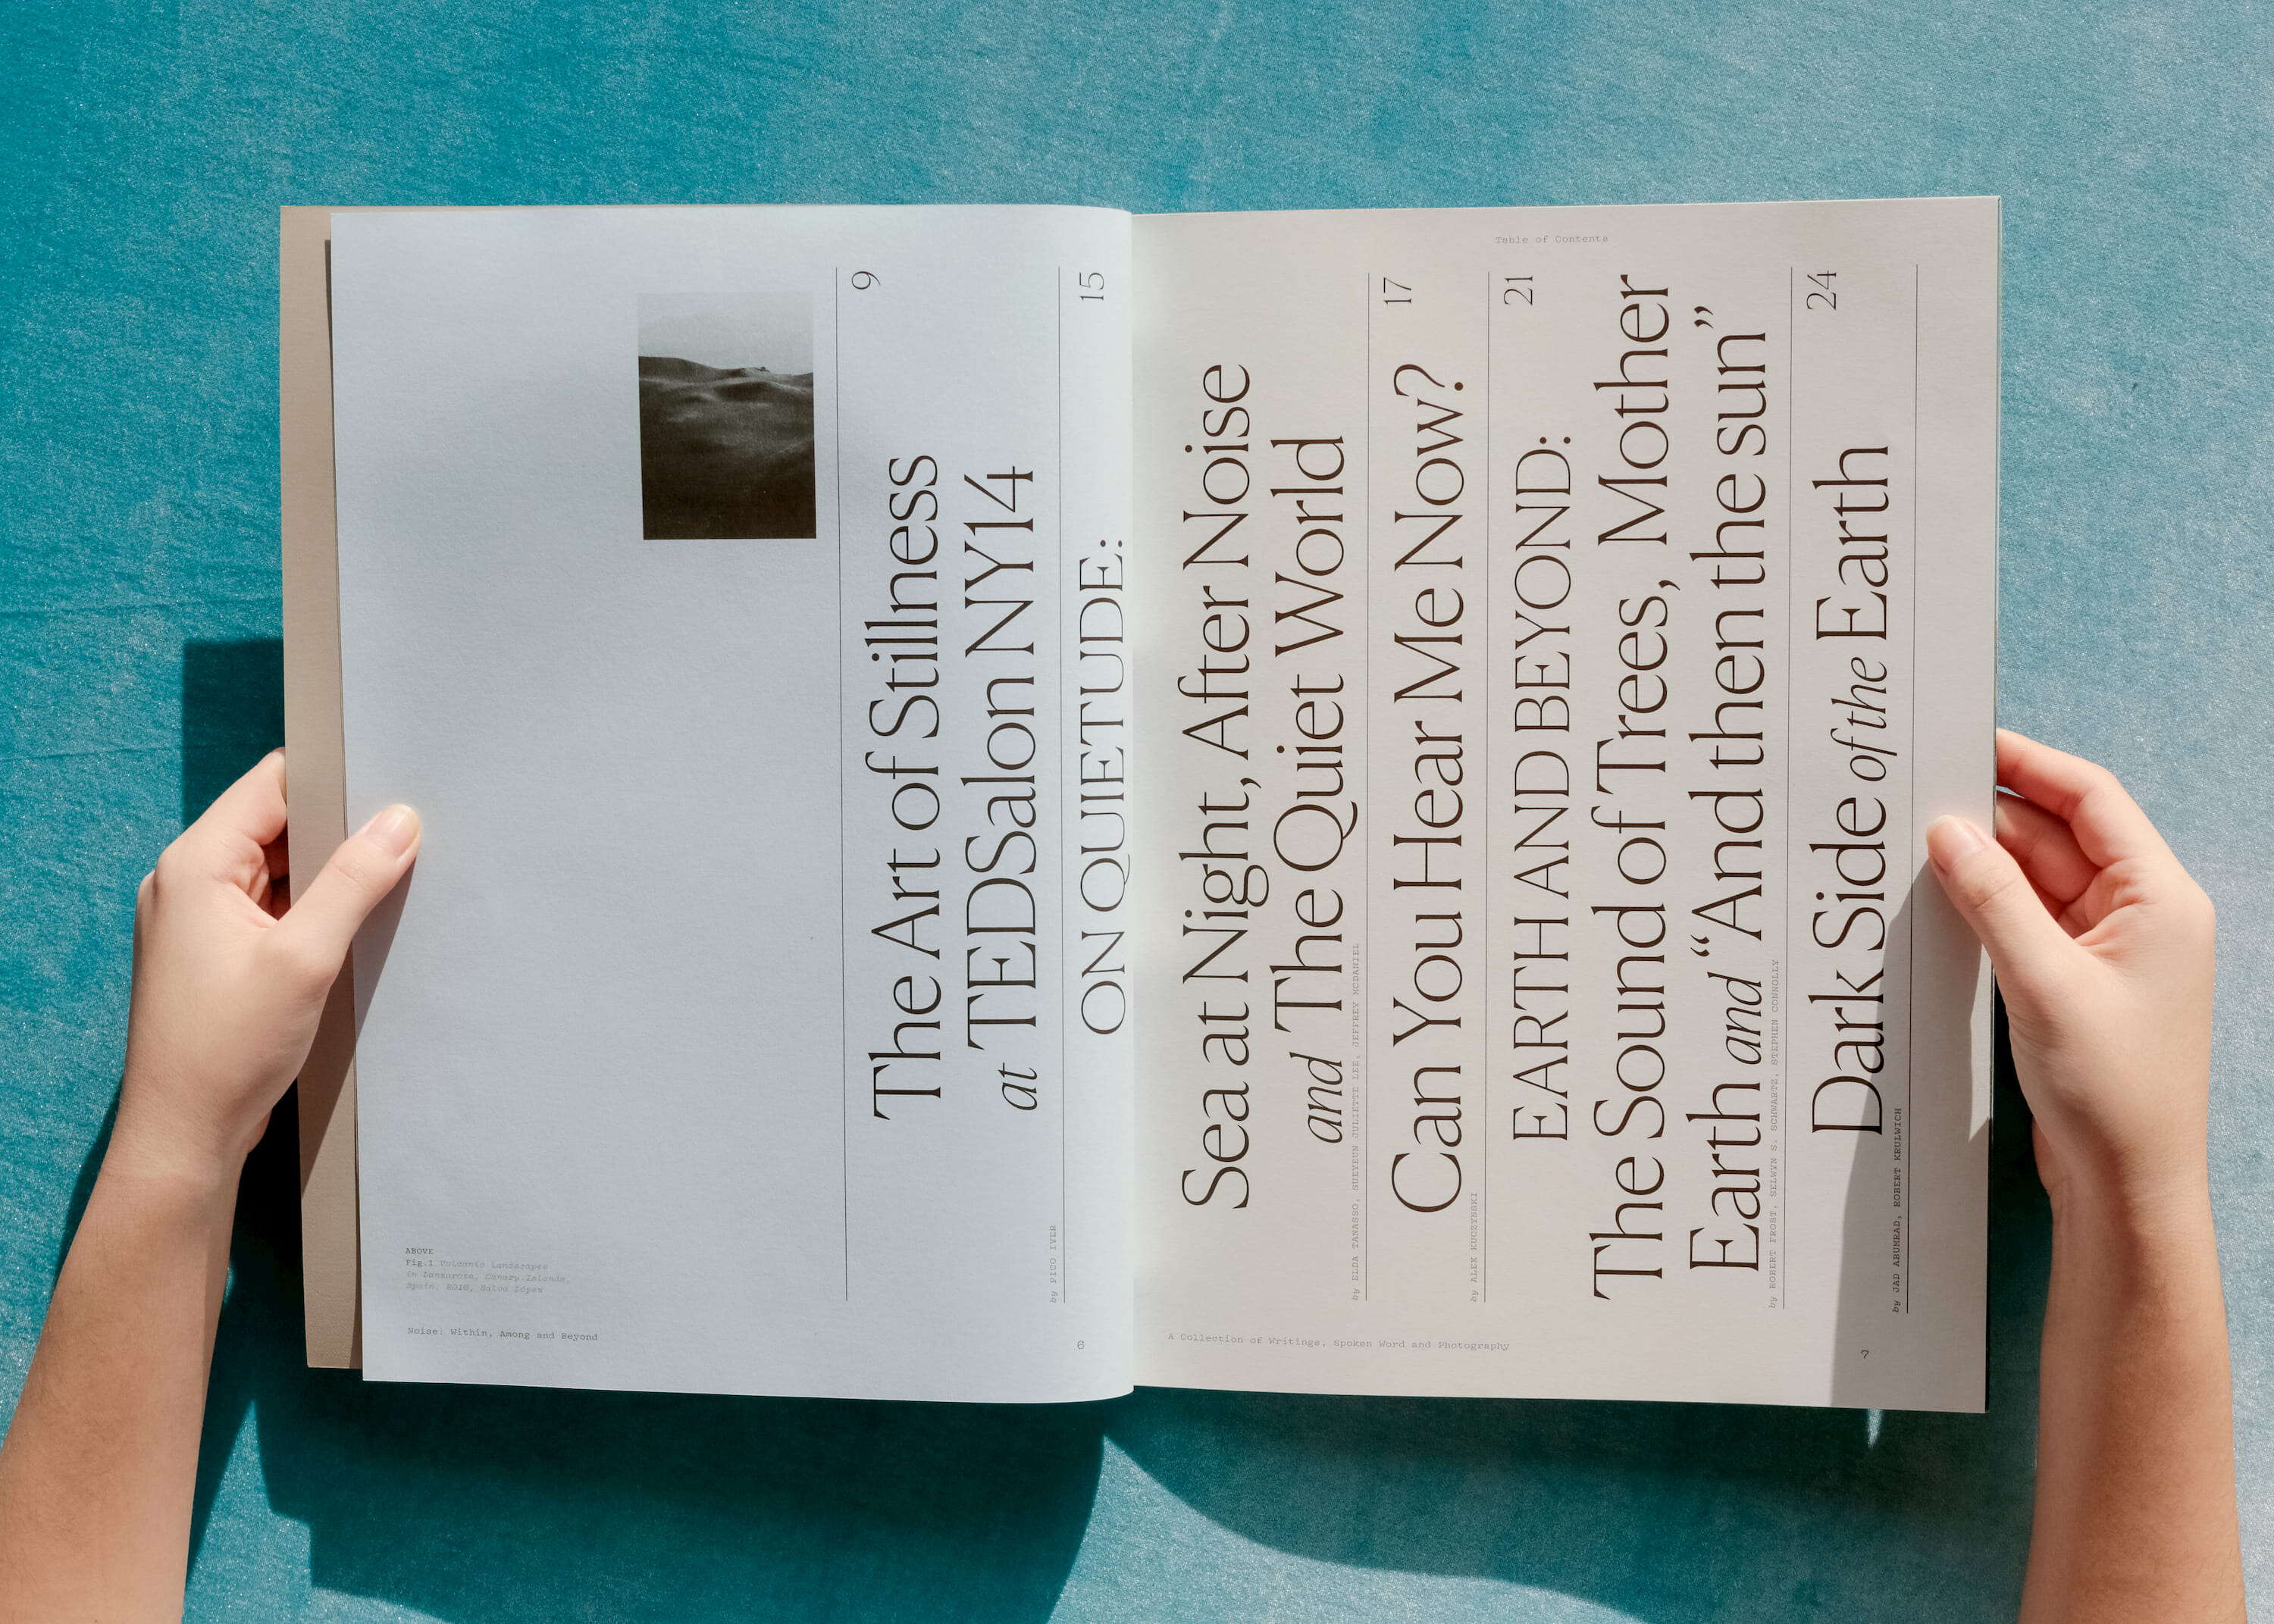 Table of Contents
9
The Art of Stillness
at TEDSalon NY14
by PICO IYER
15
ON QUIETUDE:
Sea at Night, After Noise
and The Quiet World
by ELDA TANASSO, SUEYEUN JULIETTE LEE, JEFFREY MCDANIEL
17
Can You Hear Me Now?
by ALEX KUCZYNSKI
21
EARTH AND BEYOND:
The Sound of Trees, Mother
Earth and “And then the sun”
by ROBERT FROST, SELWYN S. SCHWARTZ, STEPHEN CONNOLLY
24
Dark Side of the Earth
by JAD ABUMRAD, ROBERT KRULWICH
ABOVE
Fig.1 Volcanic Landscapes
in Lanzarote, Canary Islands,
Spain. 2016, Salva López
Noise: Within, Among and Beyond
6
A Collection of Writings, Spoken Word and Photography
7